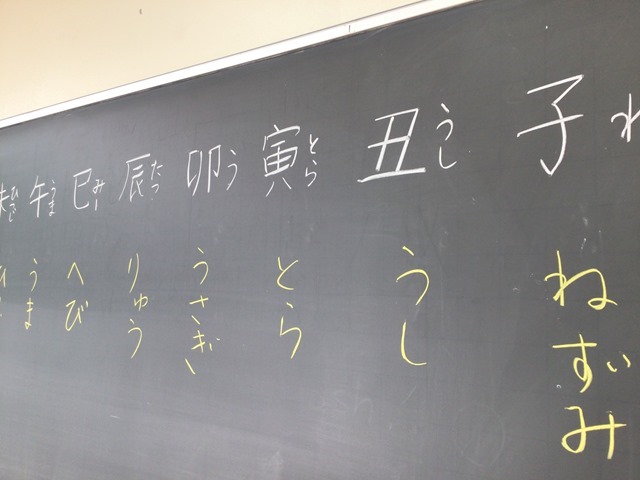 子
ね
ねずみ
丑
うし
うし
寅
とら
とら
卯
う
うさぎ
辰
たつ
りゅう
巳
み
へび
午
うま
うま
未